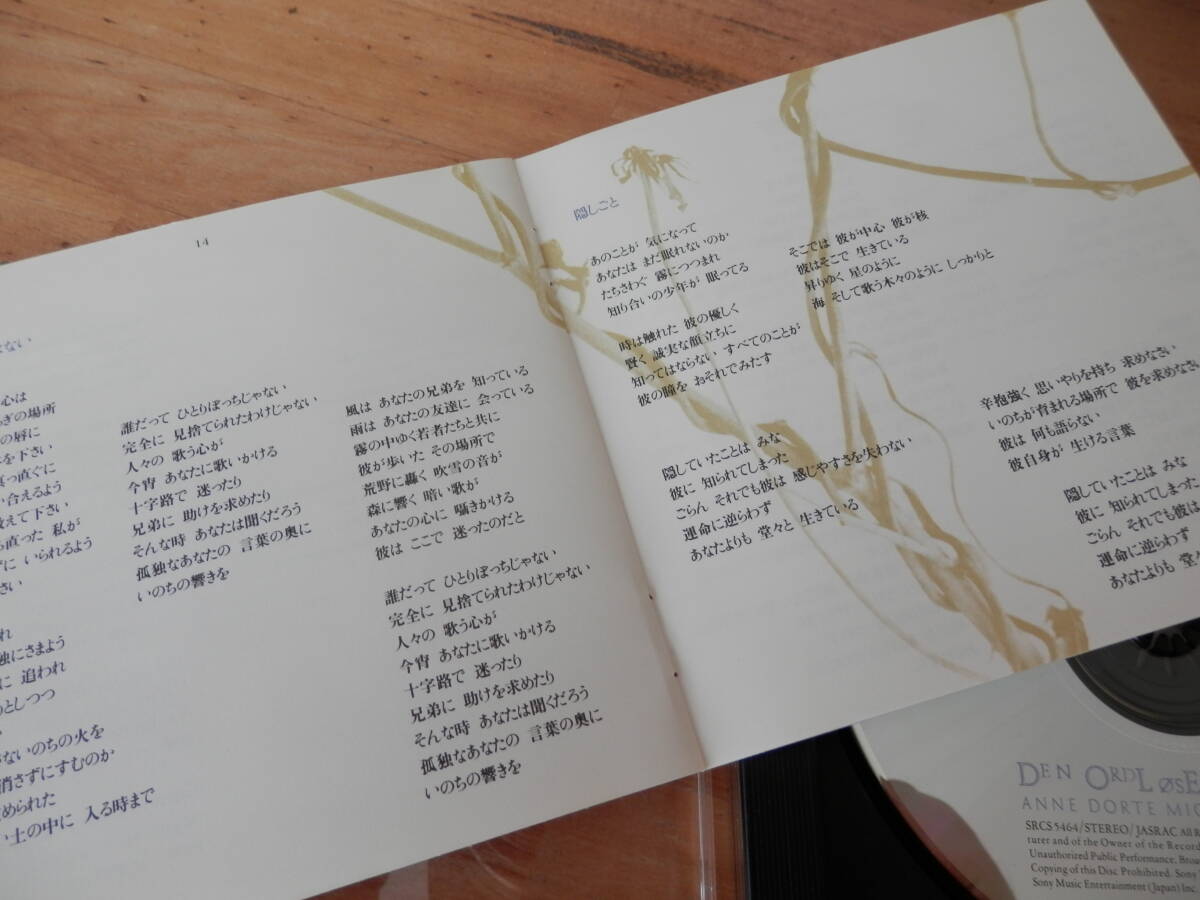 14
ない
心は
ぎの場所
の唇に
を下さい
真っ直ぐに
い合えるよう
教えて下さい
ち直った 私が
ずに いられるよう
さい
れ
独にさまよう
に 追われ
りとしつつ
ないのちの火を
消さずにすむのか
められた
い土の中に 入る時まで
誰だって ひとりぼっちじゃない
完全に 見捨てられたわけじゃない
人々の 歌う心が
今宵 あなたに歌いかける
十字路で 迷ったり
兄弟に 助けを求めたり
そんな時 あなたは聞くだろう
孤独なあなたの 言葉の奥に
いのちの響きを
風は あなたの兄弟を 知っている
雨は あなたの友達に 会っている
霧の中ゆく若者たちと共に
彼が歩いた その場所で
荒野に轟く 吹雪の音が
森に響く 暗い歌が
あなたの心に 囁きかける
彼は ここで 迷ったのだと
誰だって ひとりぼっちじゃない
完全に 見捨てられたわけじゃない
人々の 歌う心が
今宵 あなたに歌いかける
十字路で 迷ったり
兄弟に 助けを求めたり
そんな時 あなたは聞くだろう
孤独なあなたの 言葉の奥に
いのちの響きを
隠しごと
あのことが 気になって
あなたは まだ眠れないのか
たちさわぐ 霧につつまれ
知り合いの少年が 眠ってる
時は触れた 彼の優しく
賢く 誠実な顔立ちに
知ってはならない すべてのことが
彼の瞳を おそれでみたす
隠していたことは みな
彼に 知られてしまった
ごらん それでも彼は 感じやすさを失わない
運命に逆らわず
あなたよりも 堂々と 生きている
そこでは 彼が中心 彼が核
彼はそこで 生きている
昇りゆく 星のように
海 そして歌う木々のように しっかりと
辛抱強く 思いやりを持ち 求めなさい
いのちが育まれる場所で 彼を求めなさい
彼は 何も語らない
彼自身が 生ける言葉
隠していたことは みな
彼に 知られてしまった
ごらん それでも彼は
運命に逆らわず
あなたよりも 堂々
DEN ORDLØSE
ANNE DORTE MIC
SRCS 5464/STEREO/JASRAC All R
turer and of the Owner of the Record
Unauthorized Public Performance, Broa
Copying of this Disc Prohibited. Sony
Sony Music Entertainment (Japan) Inc.